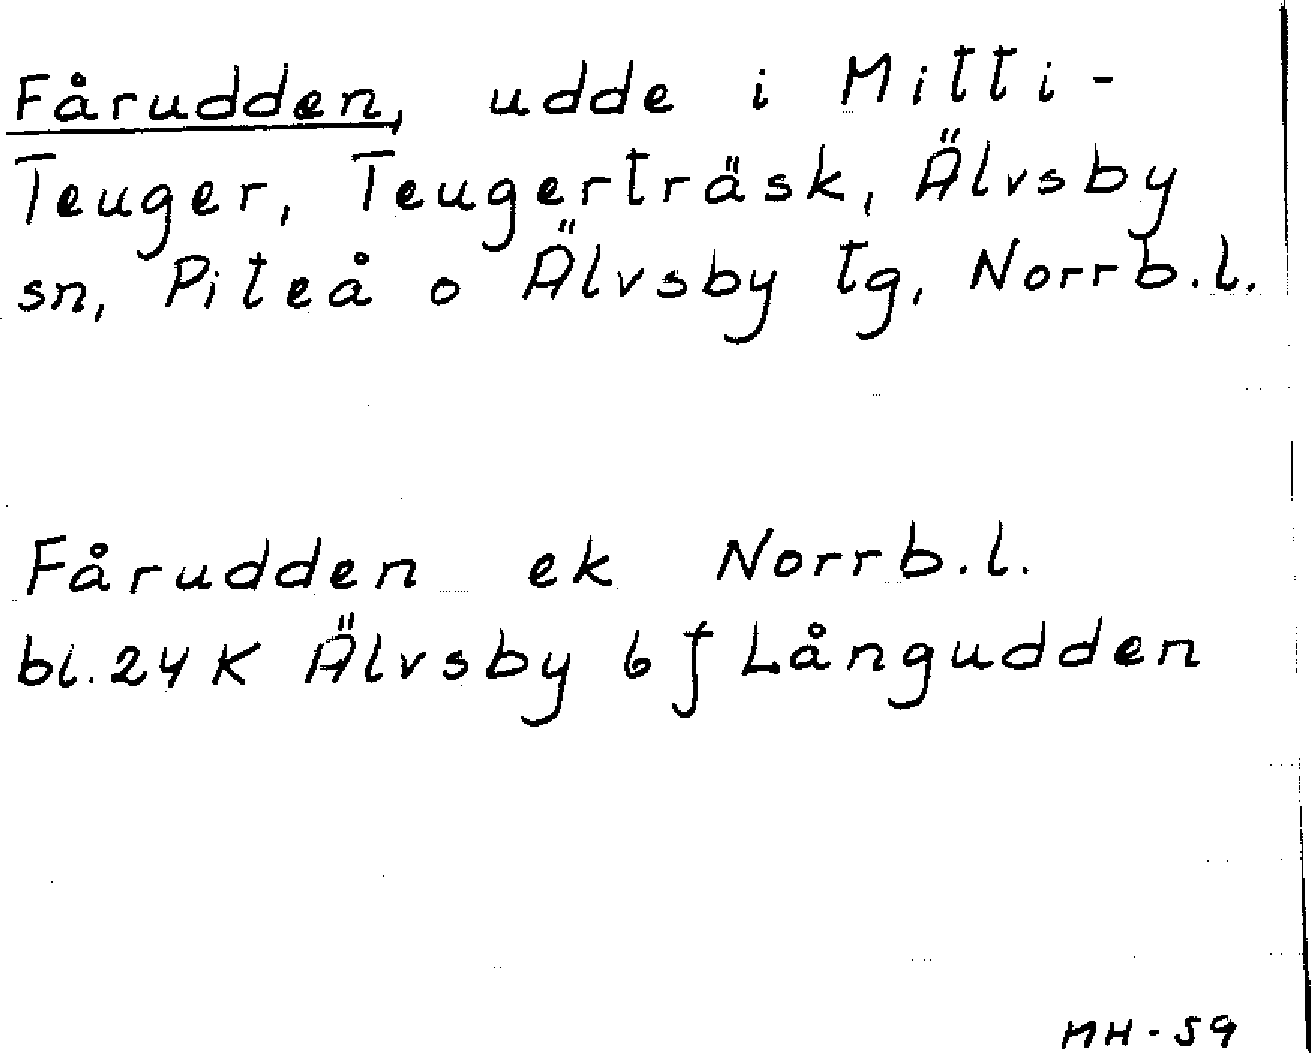 Fårudden, udde i Mitti-
Teuger, Teugerträsk, Älvsby
sn, Piteå o Älvsby tg, Norrb.l.
Fårudden ek Norrb.l.
bl. 24 K Älvsby 6 f Långudden
MH-59